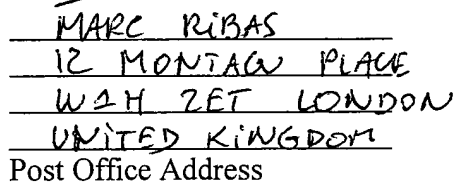 MARC RiBAS
12 MONTAGU PLACE
W1H 2ET LONDON
UNiTED KiNGDOM
Post Office Address